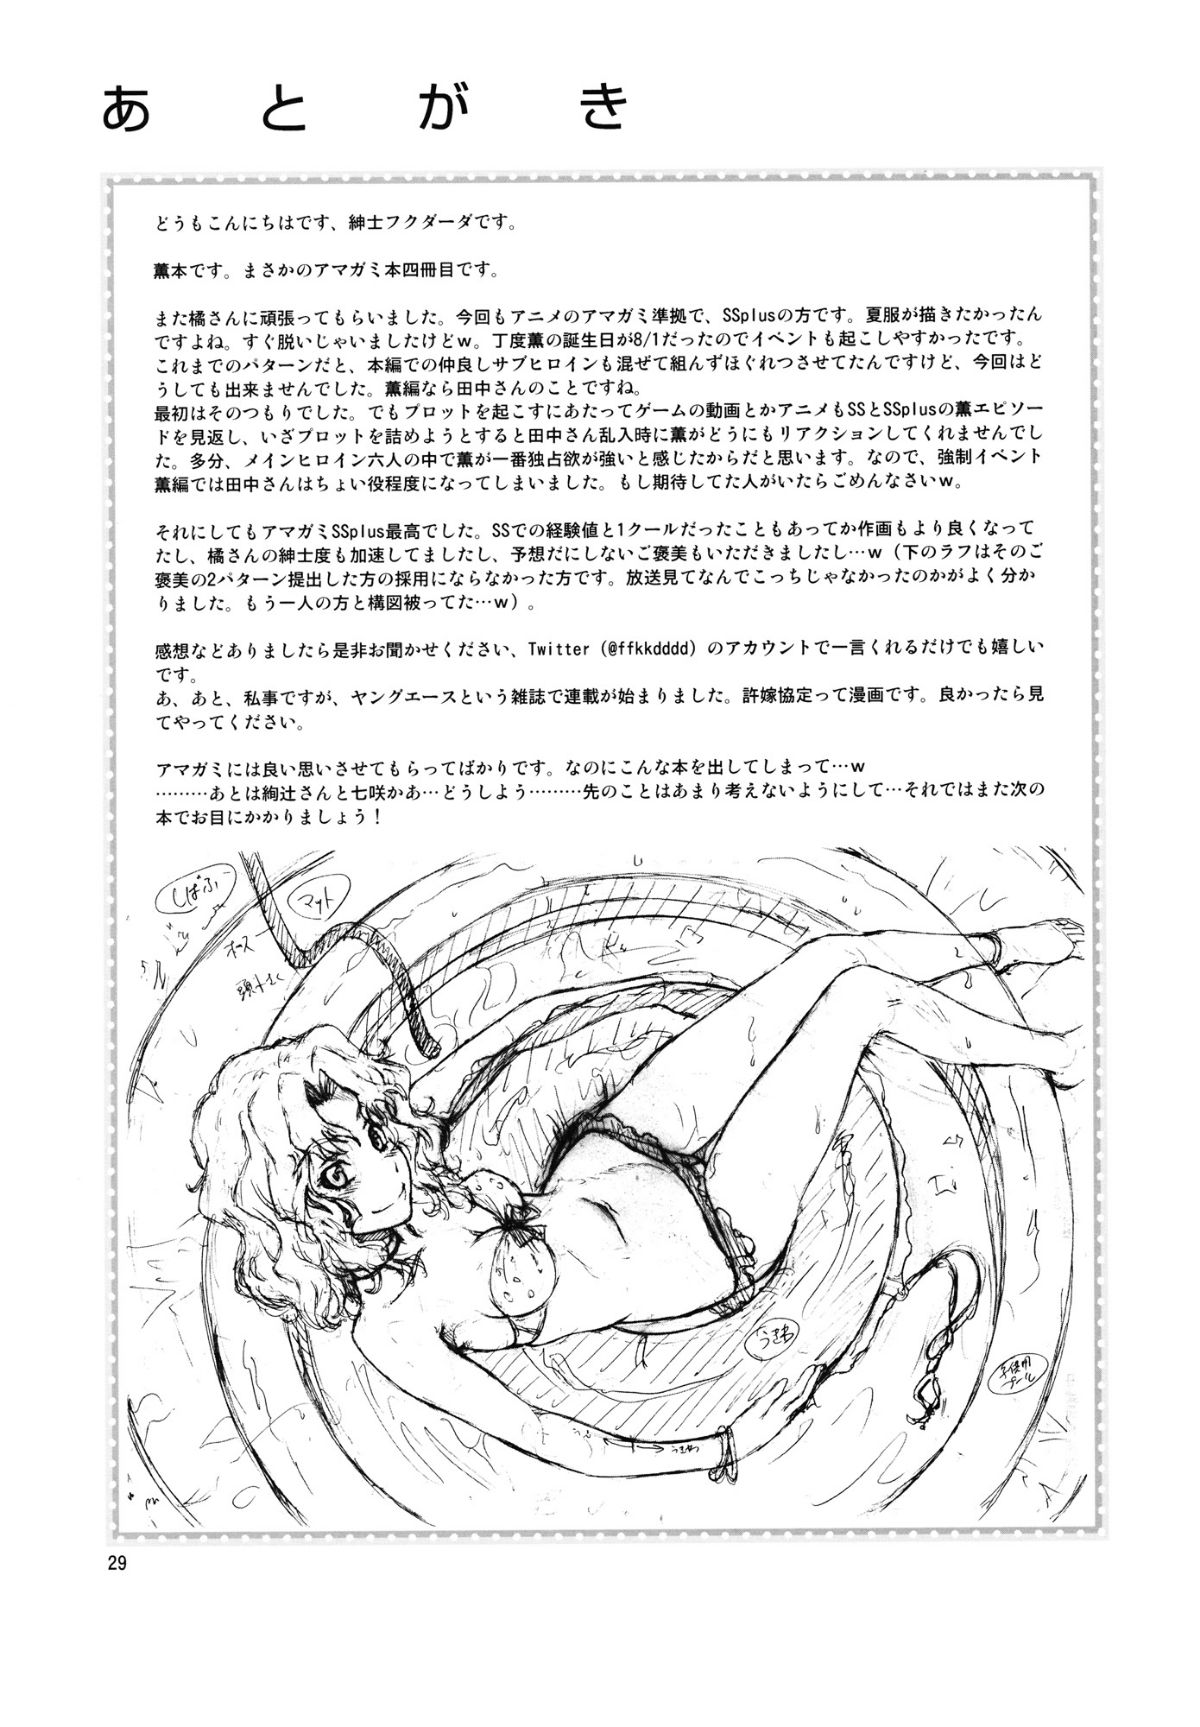 あとがき
どうもこんにちはです、紳士フクダーダです。
薫本です。まさかのアマガミ本四冊目です。
また橘さんに頑張ってもらいました。今回もアニメのアマガミ準拠で、SSplusの方です。夏服が描きたかったん
ですよね。すぐ脱いじゃいましたけどw。丁度薫の誕生日が8/1だったのでイベントも起こしやすかったです。
これまでのパターンだと、本編での仲良しサブヒロインも混ぜて組んずほぐれつさせてたんですけど、今回はど
うしても出来ませんでした。薫編なら田中さんのことですね。
最初はそのつもりでした。でもプロットを起こすにあたってゲームの動画とかアニメもSSとSSplusの薫エピソー
ドを見返し、いざプロットを詰めようとすると田中さん乱入時に薫がどうにもリアクションしてくれませんでし
た。多分、メインヒロイン六人の中で薫が一番独占欲が強いと感じたからだと思います。なので、強制イベント
薫編では田中さんはちょい役程度になってしまいました。もし期待してた人がいたらごめんなさいw。
それにしてもアマガミSSplus最高でした。SSでの経験値と1クールだったこともあってか作画もより良くなって
たし、橘さんの紳士度も加速してましたし、予想だにしないご褒美もいただきましたし…w（下のラフはそのご
褒美の2パターン提出した方の採用にならなかった方です。放送見てなんでこっちじゃなかったのかがよく分か
りました。もう一人の方と構図被ってた…w）。
感想などありましたら是非お聞かせください、Twitter（@ffkkdddd）のアカウントで一言くれるだけでも嬉しい
です。
あ、あと、私事ですが、ヤングエースという雑誌で連載が始まりました。許嫁協定って漫画です。良かったら見
てやってください。
アマガミには良い思いさせてもらってばかりです。なのにこんな本を出してしまって…w
………あとは絢辻さんと七咲かあ…どうしよう………先のことはあまり考えないようにして…それではまた次の
本でお目にかかりましょう！
しばふ
マット
ホース
うきわ
うきわ
子供用
プール
29